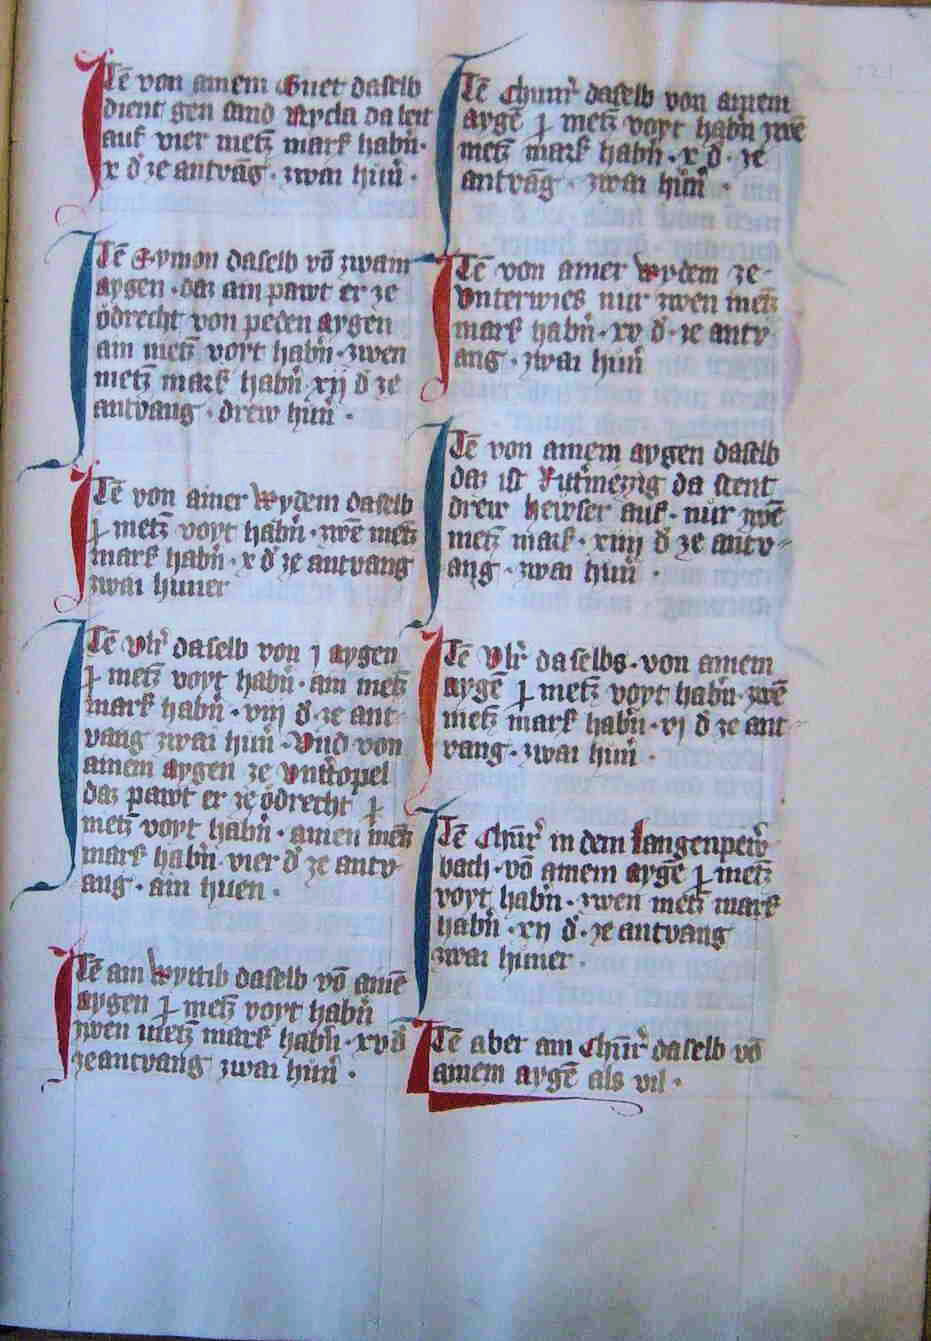 ITē von ainem Guet daselb
dient gen sand Nycla da leit
auf vier metz mark habn̄.
x d̄ ze antvāg. zwai hūn̄.
ITē Symon daselb vō zwain
aygen. daz ain pawt er ze
ödrecht von peden aygen
ain metz voyt habn̄. zwen
metz mark habn̄ xij d̄ ze
antvang. drew hūn̄.
ITē von ainer Wydem daselb
ꝑ metz voyt habn̄. zwē metz
mark habn̄. x d̄ ze antvang
zwai huner
ITē Ulr̄ daselb von j aygen
ꝑ metz voyt habn̄. ain metz
mark habn̄. viij d̄. ze ant
vang zwai hūn̄. Und von
ainem aygen ze
daz pawt er ze ödrecht ꝑ
metz voyt habn̄. ainen metz
mark habn̄. vier d̄ ze antv
ang. ain huen.
ITē ain Wyttib daselb vō ainē
aygen ꝑ metz voyt habn̄
zwen metz mark habn̄. xv d̄
ze antvang zwai hūn̄.
ITē Chunr̄ daselb von ainem
aygē ꝑ metz voyt habn̄ zwē
metz mark habn̄. x d̄. ze
antvāg. zwai hūn̄.
ITē von ainer Wydem ze
Unterwies nur zwen metz
mark habn̄. xv d̄. ze antv
ang. zwai hūn̄
ITē von ainem aygen daselb
daz ist da stent
drew hewser auf. nur zwē
metz mark. xiiij d̄ ze antv
ang. zwai hūn̄.
ITē Ulr̄ daselbs. von ainem
aygē ꝑ metz voyt habn̄. zwē
metz mark habn̄. vj d̄ ze ant
vang. zwai hūn̄.
ITē Chūr̄ in dem langenpew
bach. vō ainem aygē ꝑ metz
voyt habn̄. zwen metz mark
habn̄. xij d̄. ze antvang
zwai huner.
ITē aber ain Chūr̄ daselb vō
ainem aygē als vil.